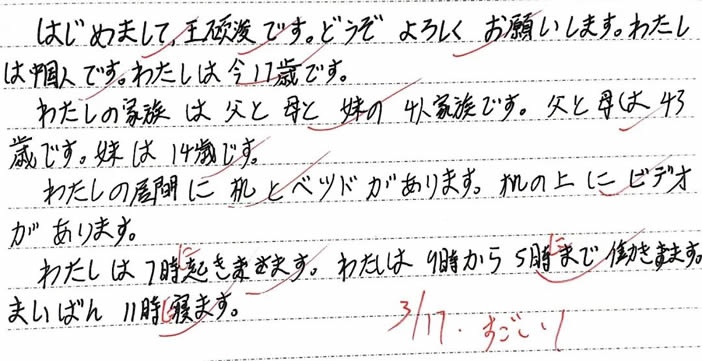 はじめまして、王硕浚です。どうぞ よろしく お願いします。わたし
は中国人です。わたしは今17歳です。
わたしの家族 は 父と 母と 妹の 4人家族です。父と母は 43
歳です。妹 は 14歳です。
わたしの居間 に 机 と ベッド があります。机の上 に ビデオ
が あります。
わたし は 7時に起きます。わたしは 9時から 5時まで 働きます。
まいばん 11時に寝ます。
3/17. すごい!